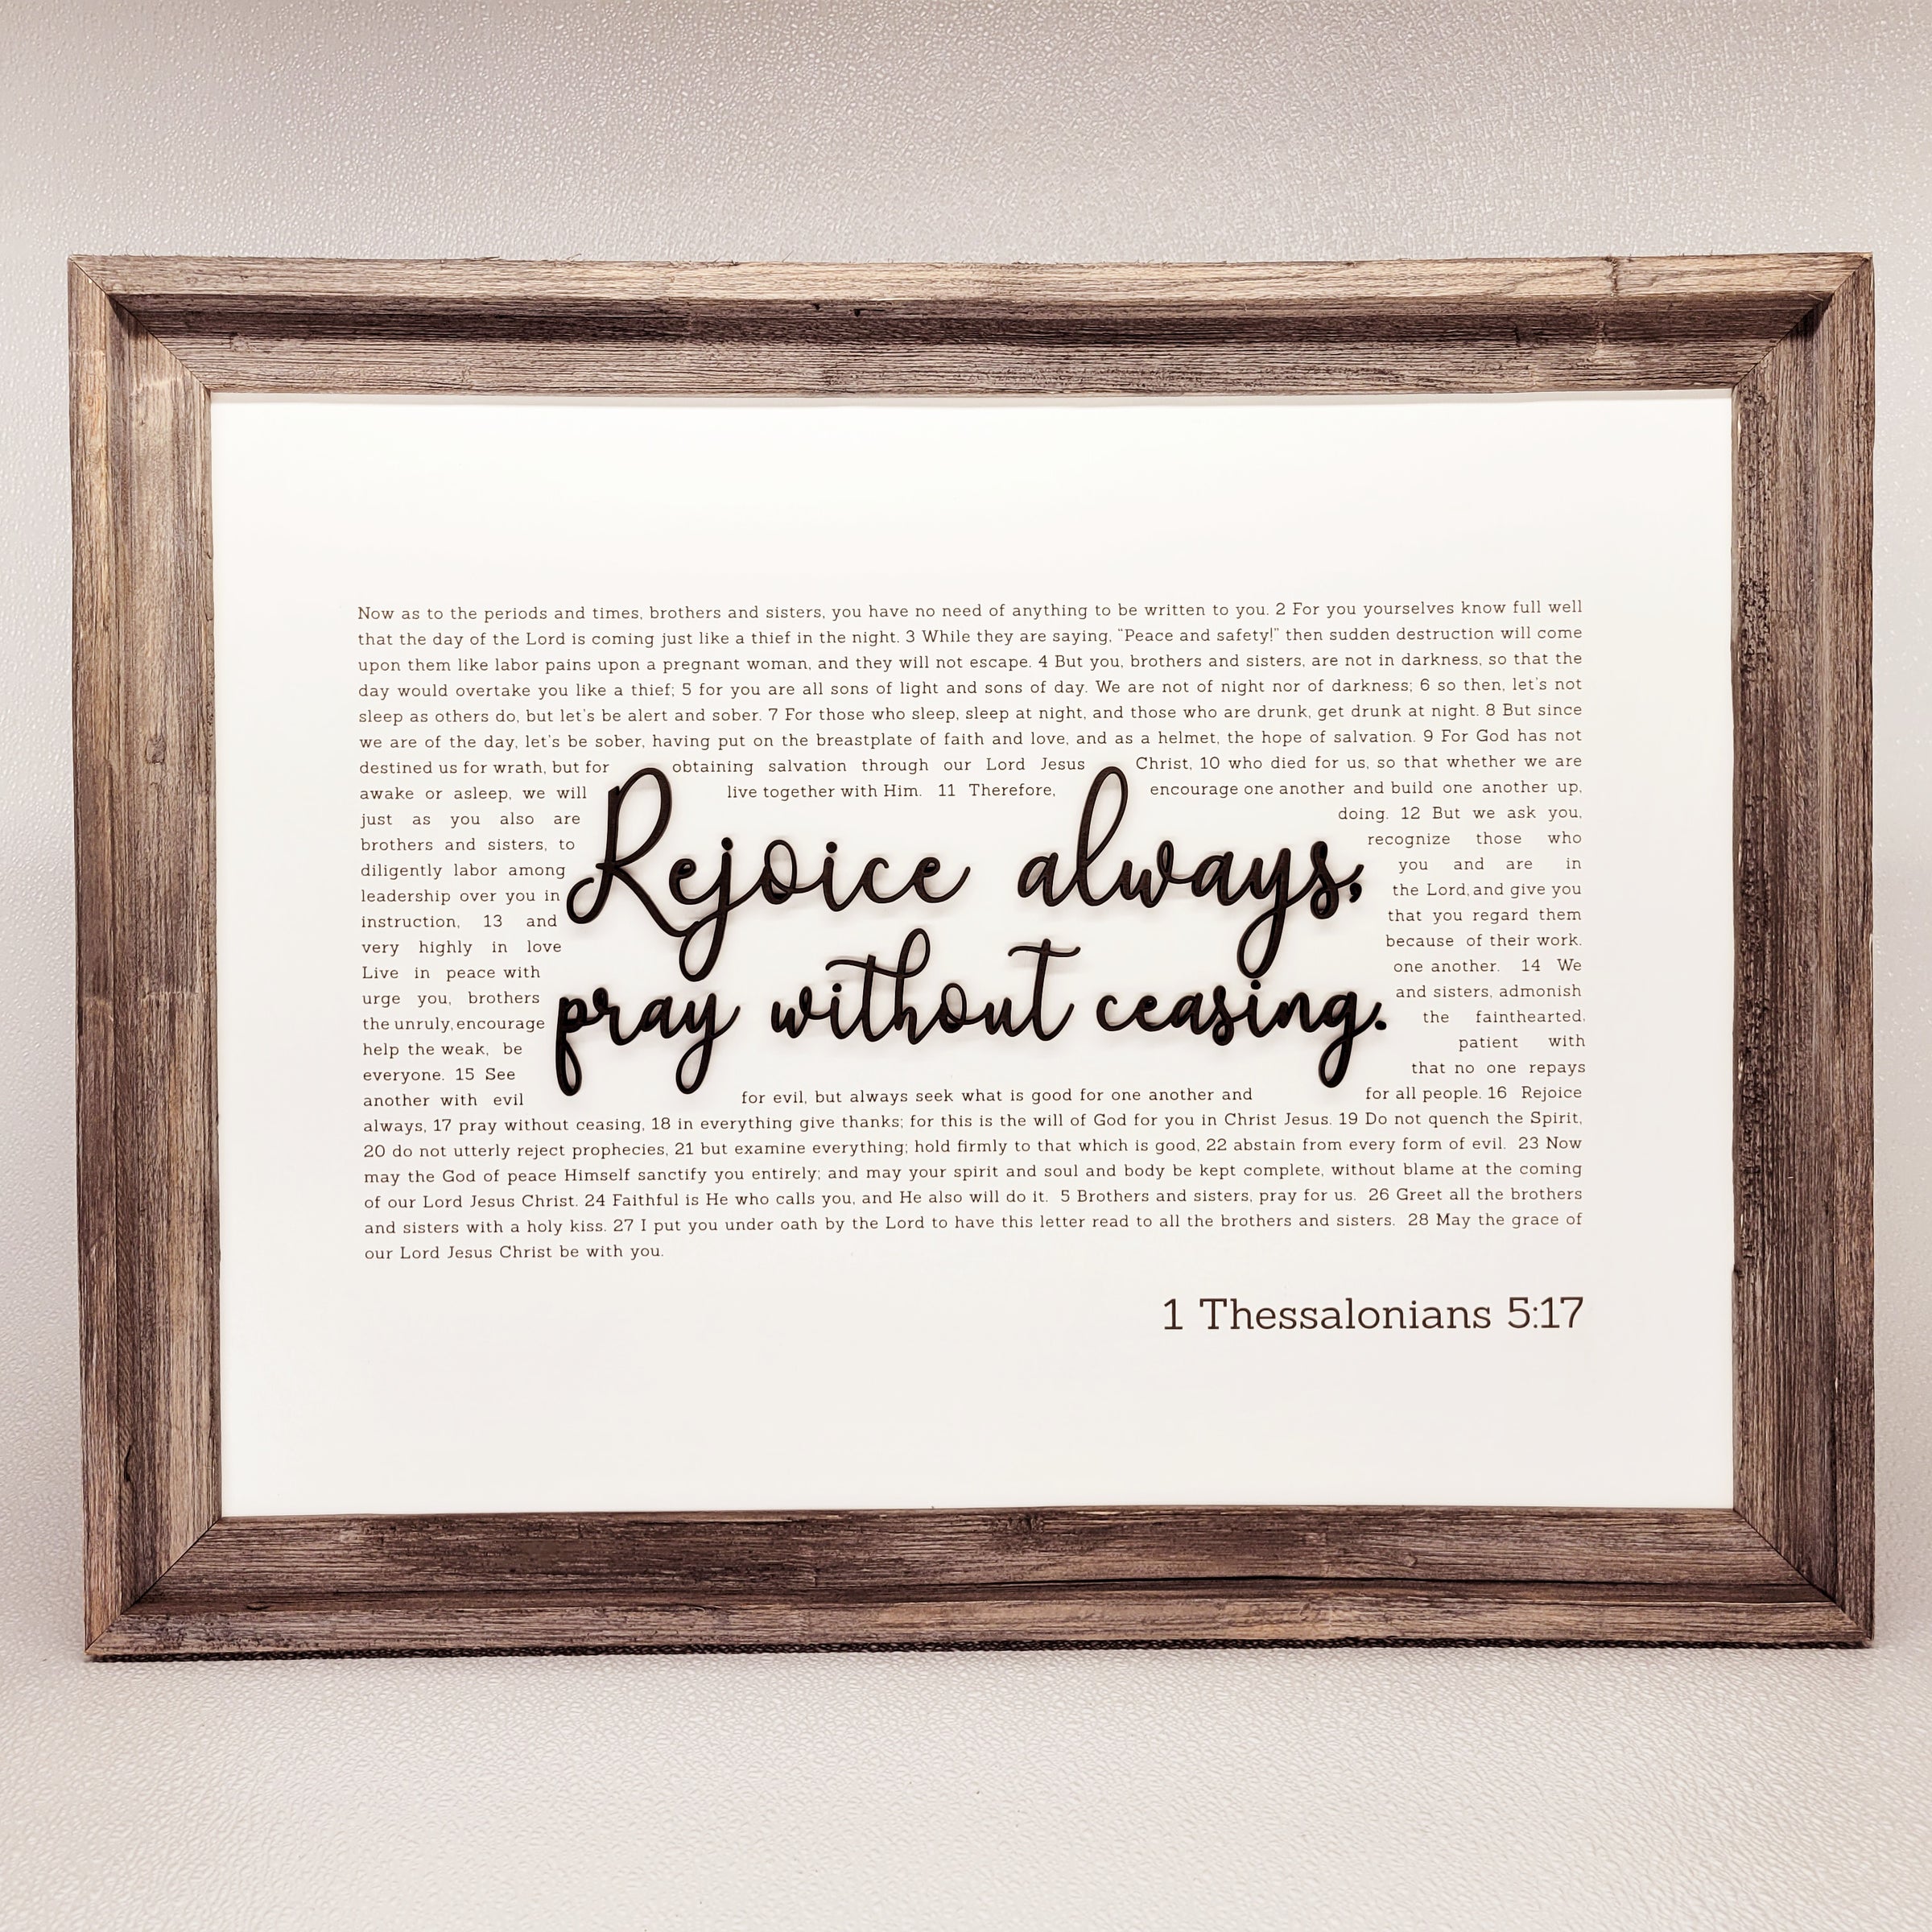 Now as to the periods and times, brothers and sisters, you have no need of anything to be written to you. 2 For you yourselves know full well
that the day of the Lord is coming just like a thief in the night. 3 While they are saying, "Peace and safety!" then sudden destruction will come
upon them like labor pains upon a pregnant woman, and they will not escape. 4 But you, brothers and sisters, are not in darkness, so that the
day would overtake you like a thief; 5 for you are all sons of light and sons of day. We are not of night nor of darkness; 6 so then, let's not
sleep as others do, but let's be alert and sober. 7 For those who sleep, sleep at night, and those who are drunk, get drunk at night. 8 But since
we are of the day, let's be sober, having put on the breastplate of faith and love, and as a helmet, the hope of salvation. 9 For God has not
destined us for wrath, but for obtaining salvation through our Lord Jesus Christ, 10 who died for us, so that whether we are
awake or asleep, we will live together with Him. 11 Therefore, encourage one another and build one another up,
just as you also are doing. 12 But we ask you,
brothers and sisters, to recognize those who
diligently labor among you and are in
leadership over you in the Lord, and give you
instruction, 13 and that you regard them
very highly in love because of their work.
Live in peace with one another. 14 We
urge you, brothers and sisters, admonish
the unruly, encourage the fainthearted,
help the weak, be patient with
everyone. 15 See that no one repays
another with evil for evil, but always seek what is good for one another and for all people. 16 Rejoice
always, 17 pray without ceasing, 18 in everything give thanks; for this is the will of God for you in Christ Jesus. 19 Do not quench the Spirit,
20 do not utterly reject prophecies, 21 but examine everything; hold firmly to that which is good, 22 abstain from every form of evil. 23 Now
may the God of peace Himself sanctify you entirely; and may your spirit and soul and body be kept complete, without blame at the coming
of our Lord Jesus Christ. 24 Faithful is He who calls you, and He also will do it. 5 Brothers and sisters, pray for us. 26 Greet all the brothers
and sisters with a holy kiss. 27 I put you under oath by the Lord to have this letter read to all the brothers and sisters. 28 May the grace of
our Lord Jesus Christ be with you.
Rejoice always,
pray without ceasing.
1 Thessalonians 5:17